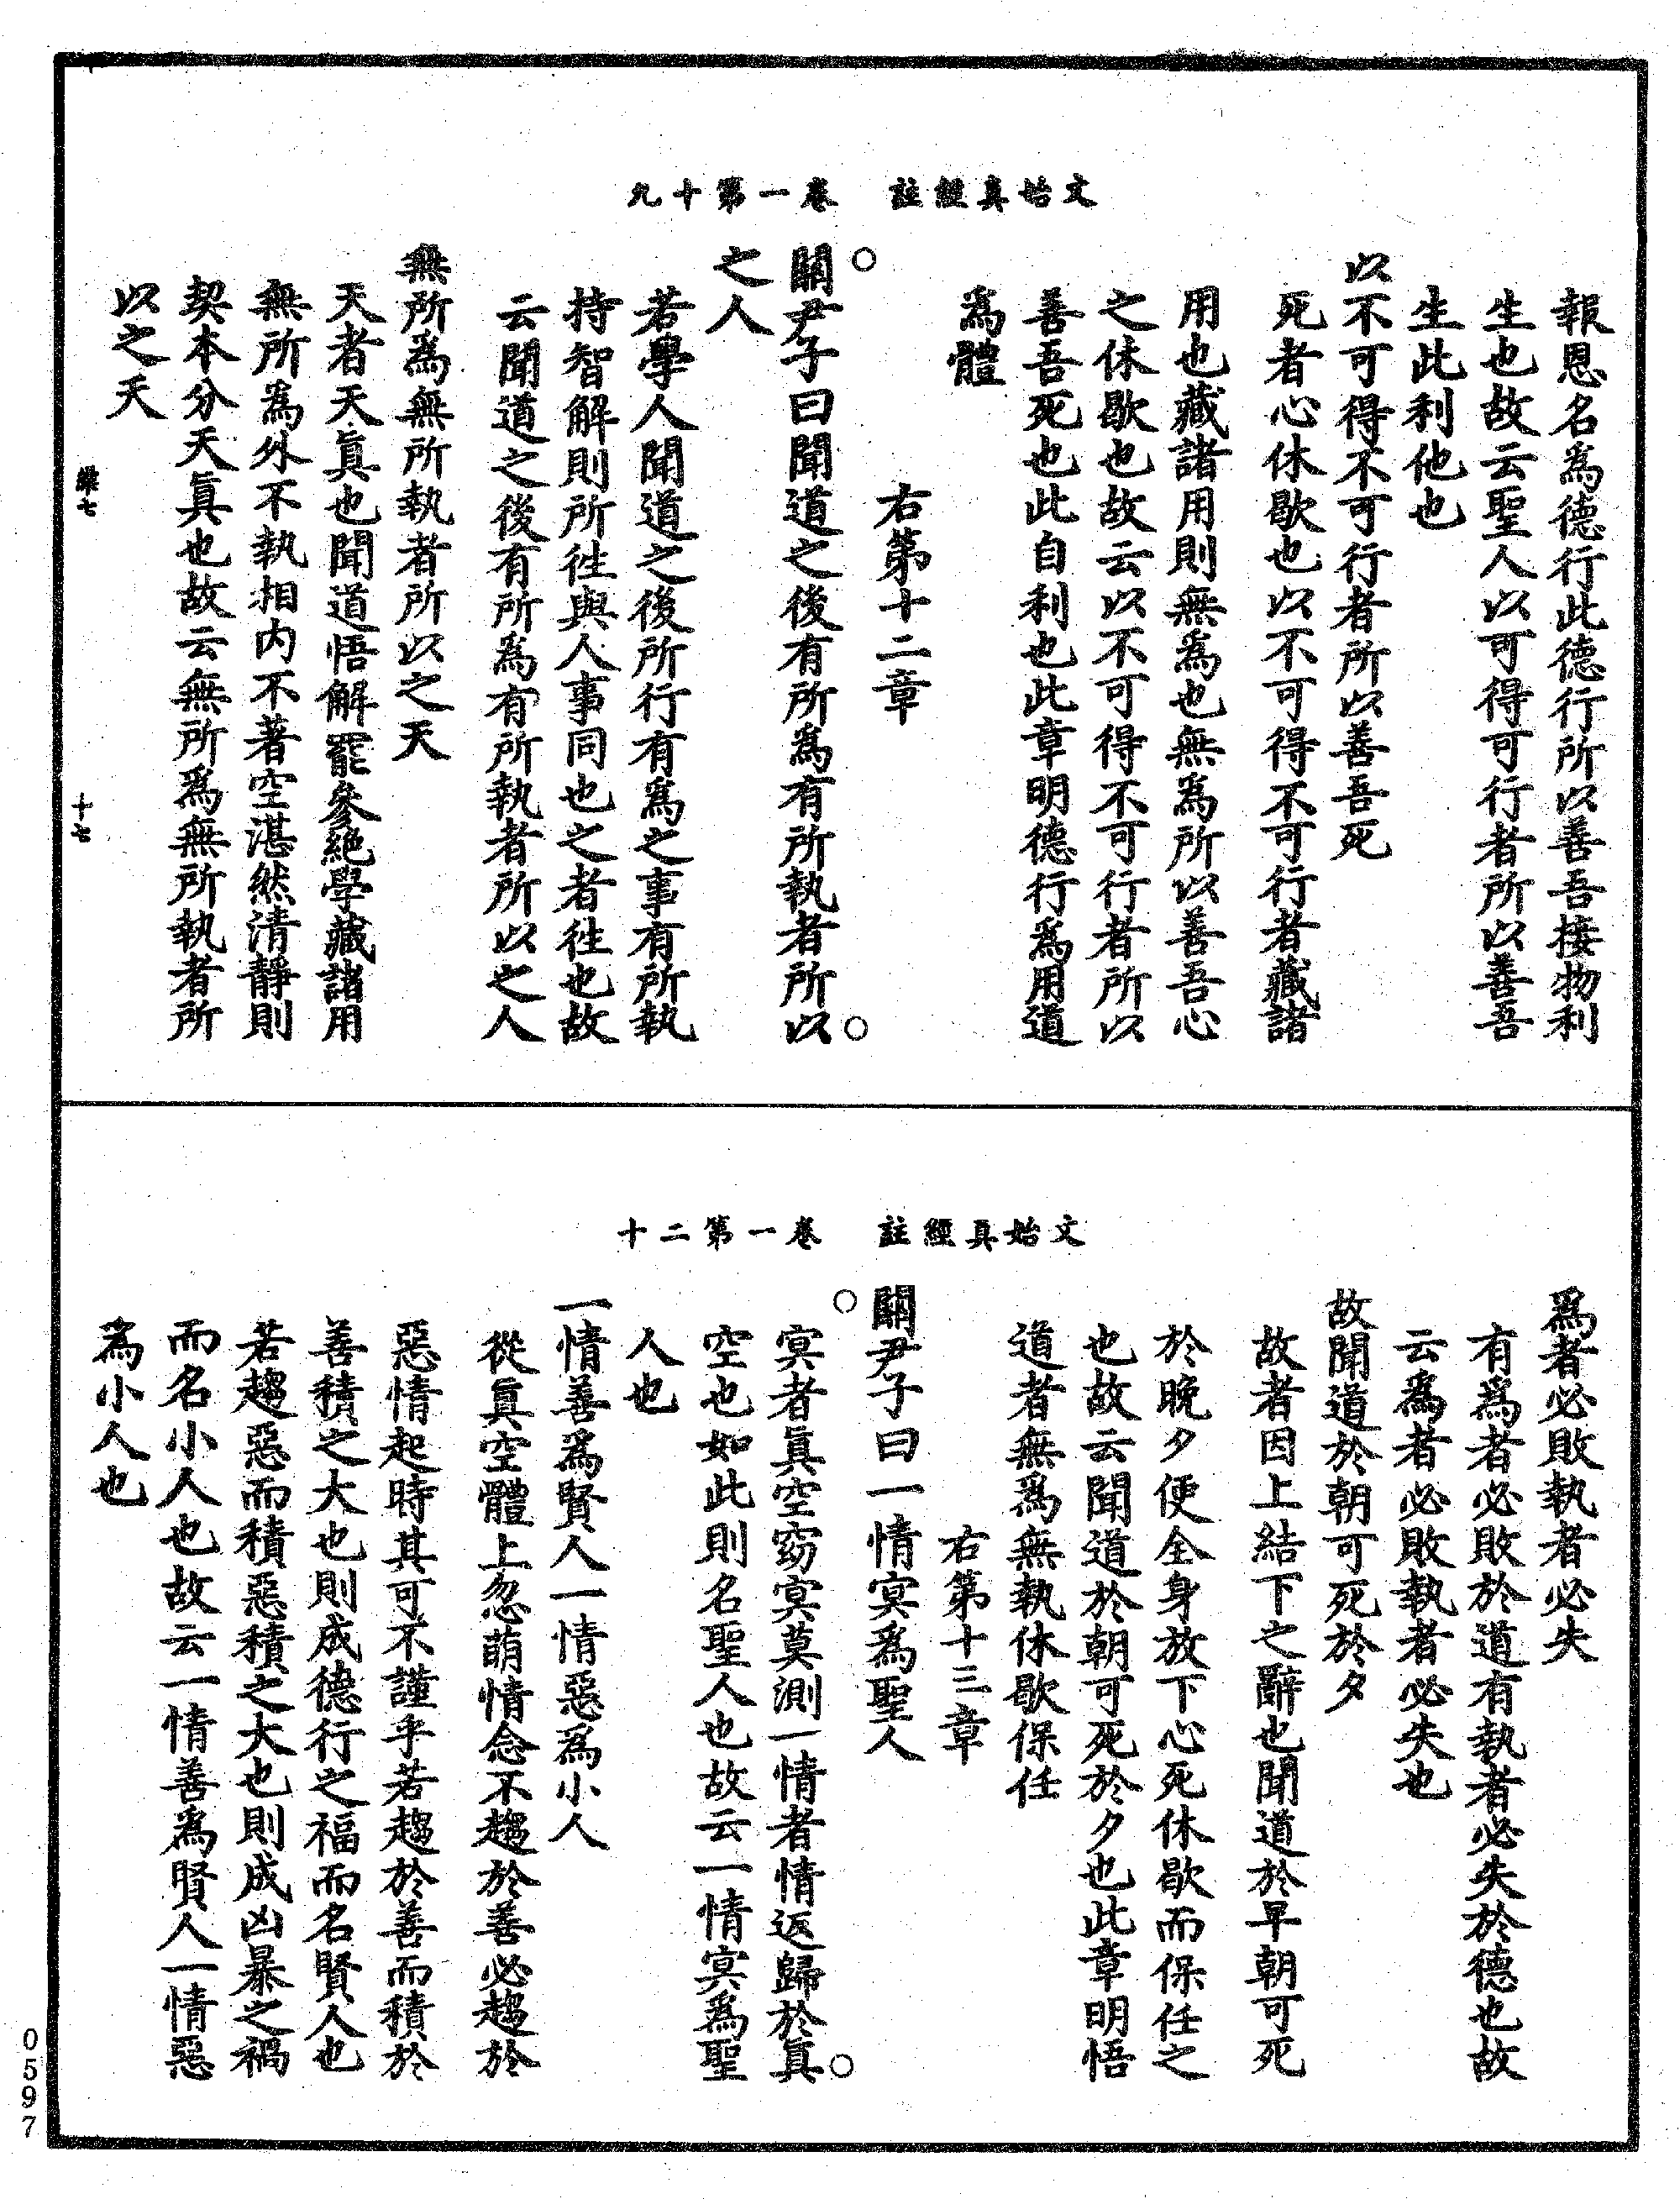 文始真經註　卷一第十九
報恩名為德行此德行所以善吾接物利
生也故云聖人以可得可行者所以善吾
生此利他也
以不可得不可行者所以善吾死
死者心休歇也以不可得不可行者藏諸
用也藏諸用則無為也無為所以善吾心
之休歇也故云以不可得不可行者所以
善吾死也此自利也此章明德行為用道
為體
右第十二章
○
關尹子曰聞道之後有所為有所執者所以
○
之人
若學人聞道之後所行有為之事有所執
持智解則所徃與人事同也之者徃也故
云聞道之後有所為有所執者所以之人
無所為無所執者所以之天
天者天真也聞道悟解罷參絕學藏諸用
無所為外不執相內不著空湛然清靜則
契本分天真也故云無所為無所執者所
以之天
十七
文始真經註　卷一第二十
為者必敗執者必失
有為者必敗於道有執者必失於德也故
云為者必敗執者必失也
故聞道於朝可死於夕
故者因上結下之辭也聞道於早朝可死
於晚夕便全身放下心死休歇而保任之
也故云聞道於朝可死於夕也此章明悟
道者無為無執休歇保任
右第十三章
關尹子曰一情冥為聖人
○
冥者真空窈冥莫測一情者情返歸於真
○
空也如此則名聖人也故云一情冥為聖
人也
一情善為賢人一情惡為小人
從真空體上忽萌情念不趨於善必趨於
惡情起時其可不謹乎若趨於善而積於
善積之大也則成德行之福而名賢人也
若趨惡而積惡積之大也則成凶暴之禍
而名小人也故云一情善為賢人一情惡
為小人也
0597